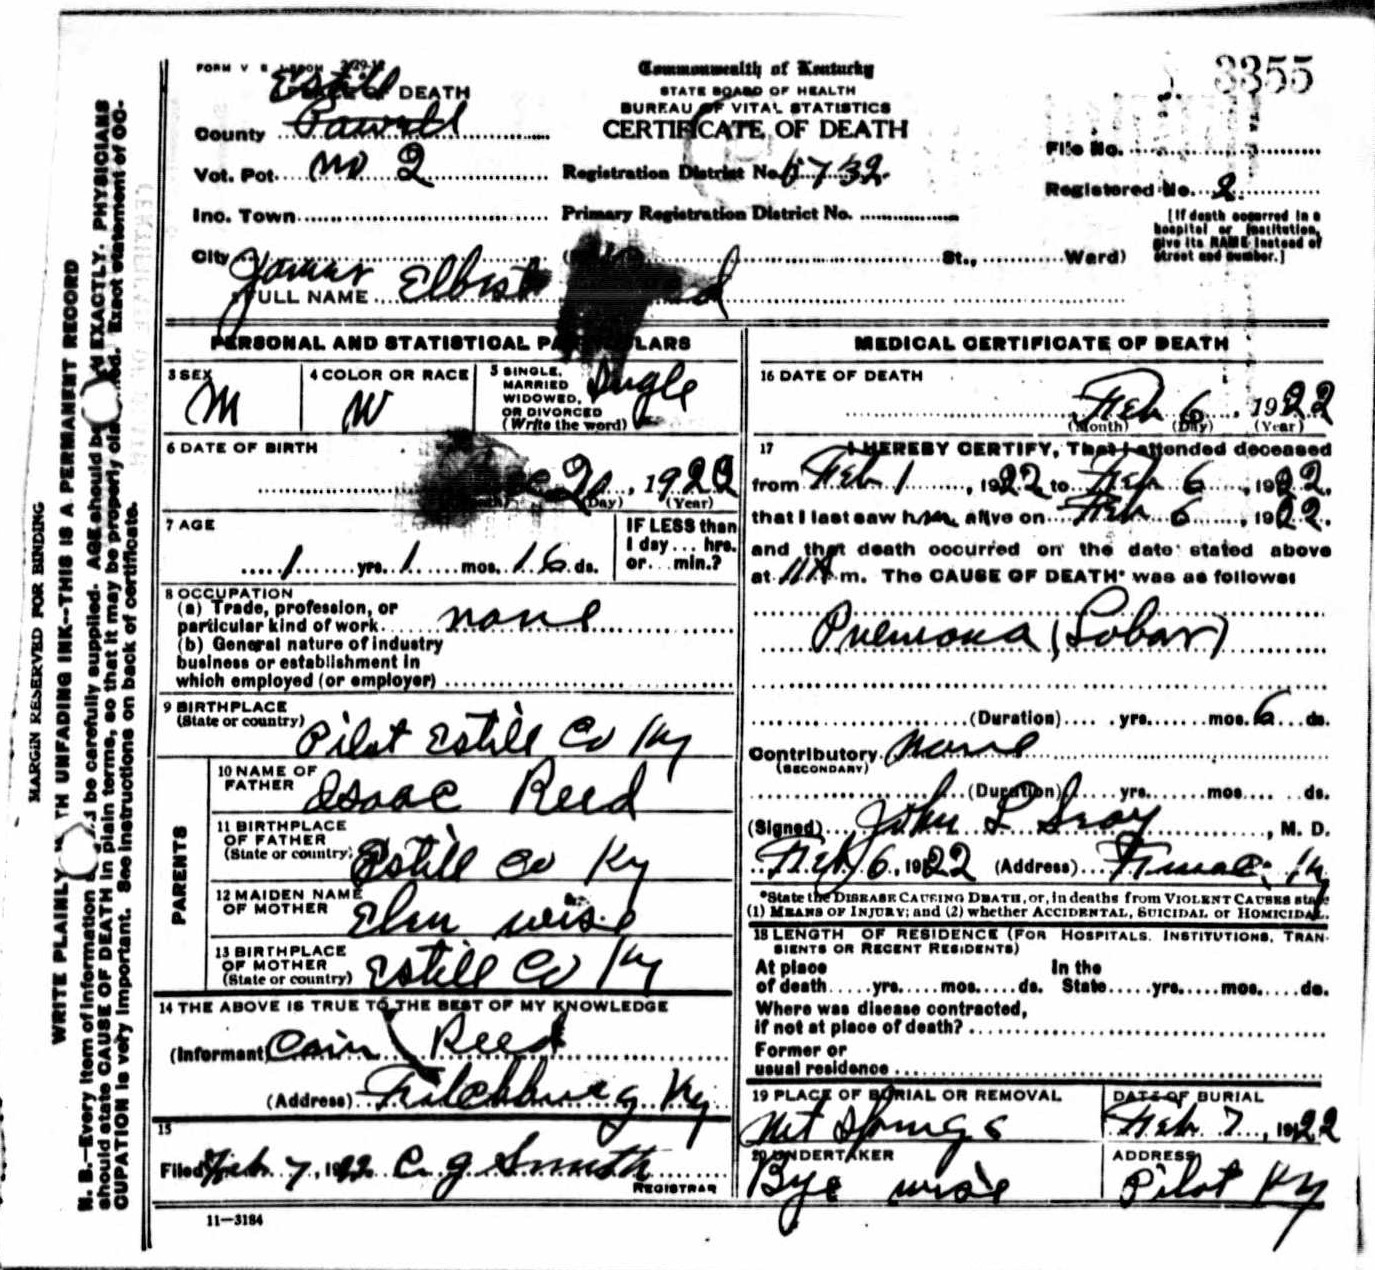 3355
FORM V S
Commonwealth of Kentucky
STATE BOARD OF HEALTH
BUREAU OF VITAL STATISTICS
CERTIFICATE OF DEATH
Estill
PLACE OF DEATH
County Powell
Vot. Pct. No 2
Registration District No. 6732
File No.
Registered No. 2
Inc. Town
Primary Registration District No.
[If death occurred in a hospital or institution, give its NAME instead of street and number.]
City
St., Ward)
James
FULL NAME Elbert
PERSONAL AND STATISTICAL PARTICULARS
3 SEX M
4 COLOR OR RACE W
5 SINGLE, MARRIED WIDOWED, OR DIVORCED (Write the word) Single
6 DATE OF BIRTH
(Day) , 1920 (Year)
7 AGE
1 yrs. 1 mos. 16 ds.
IF LESS than 1 day... hrs. or... min.?
8 OCCUPATION
(a) Trade, profession, or
particular kind of work none
(b) General nature of industry
business or establishment in
which employed (or employer)
9 BIRTHPLACE
(State or country) Pilot Estill Co Ky
PARENTS
10 NAME OF FATHER Isaac Reed
11 BIRTHPLACE OF FATHER (State or country) Estill Co Ky
12 MAIDEN NAME OF MOTHER wise
13 BIRTHPLACE OF MOTHER (State or country) Estill Co Ky
14 THE ABOVE IS TRUE TO THE BEST OF MY KNOWLEDGE
(Informant) Cain Reed
(Address) Ky
15
Filed Feb 7, 1922 C. G. Smith
REGISTRAR
11—3184
MEDICAL CERTIFICATE OF DEATH
16 DATE OF DEATH
Feb 6, 1922
(Month) (Day) (Year)
17 I HEREBY CERTIFY, That I attended deceased
from Feb 1, 1922 to Feb 6, 1922,
that I last saw him alive on Feb 6, 1922,
and that death occurred on the date stated above
at 11 A m. The CAUSE OF DEATH* was as follows:
Pnemona (Lobar)
(Duration) yrs. mos. 6 ds.
Contributory none
(SECONDARY)
(Duration) yrs. mos. ds.
(Signed) John L , M. D.
Feb 6, 1922 (Address) Ky
*State the DISEASE CAUSING DEATH, or, in deaths from VIOLENT CAUSES state
(1) MEANS OF INJURY; and (2) whether ACCIDENTAL, SUICIDAL or HOMICIDAL.
18 LENGTH OF RESIDENCE (FOR HOSPITALS, INSTITUTIONS, TRAN-
SIENTS OR RECENT RESIDENTS)
At place In the
of death yrs. mos. ds. State yrs. mos. ds.
Where was disease contracted,
if not at place of death?
Former or
usual residence
19 PLACE OF BURIAL OR REMOVAL
DATE OF BURIAL
Springs
Feb 7, 1922
20 UNDERTAKER
ADDRESS
Bye wise
Pilot Ky
MARGIN RESERVED FOR BINDING
WRITE PLAINLY WITH UNFADING INK—THIS IS A PERMANENT RECORD
N. B.—Every item of information should be carefully supplied. AGE should be stated EXACTLY. PHYSICIANS
should state CAUSE OF DEATH in plain terms, so that it may be properly classified. Exact statement of OC-
CUPATION is very important. See instructions on back of certificate.